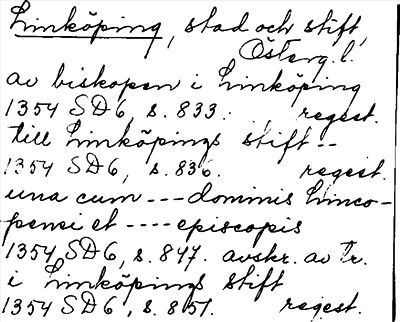 Linköping, stad och stift,
Österg.l.
av biskopen i Linköping
1354 SD6, s. 833. regest.
till Linköpings stift --
1354 SD6, s. 836. regest.
una cum --- dominis Linco-
pensi et ---- episcopis
1354 SD6, s. 847. avskr. av tr.
i Linköpings stift
1354 SD6, s. 851. regest.